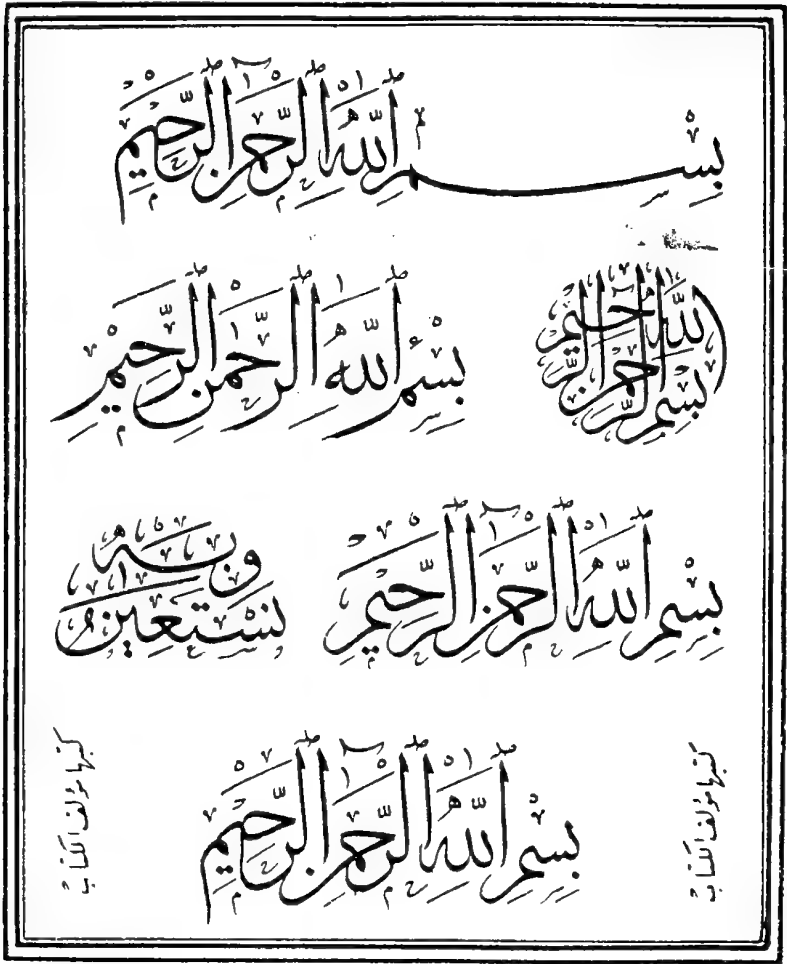 بِسْمِ اللّٰهِ الرَّحْمٰنِ الرَّحِيْمِ
بِسْمِ اللّٰهِ الرَّحْمٰنِ الرَّحِيْمِ
بِسْمِ اللّٰهِ الرَّحْمٰنِ الرَّحِيْمِ
بِسْمِ اللّٰهِ الرَّحْمٰنِ الرَّحِيْمِ
وَبِهِ نَسْتَعِيْنُ
بِسْمِ اللّٰهِ الرَّحْمٰنِ الرَّحِيْمِ
كتبها مؤلف الكتاب
كتبها مؤلف الكتاب